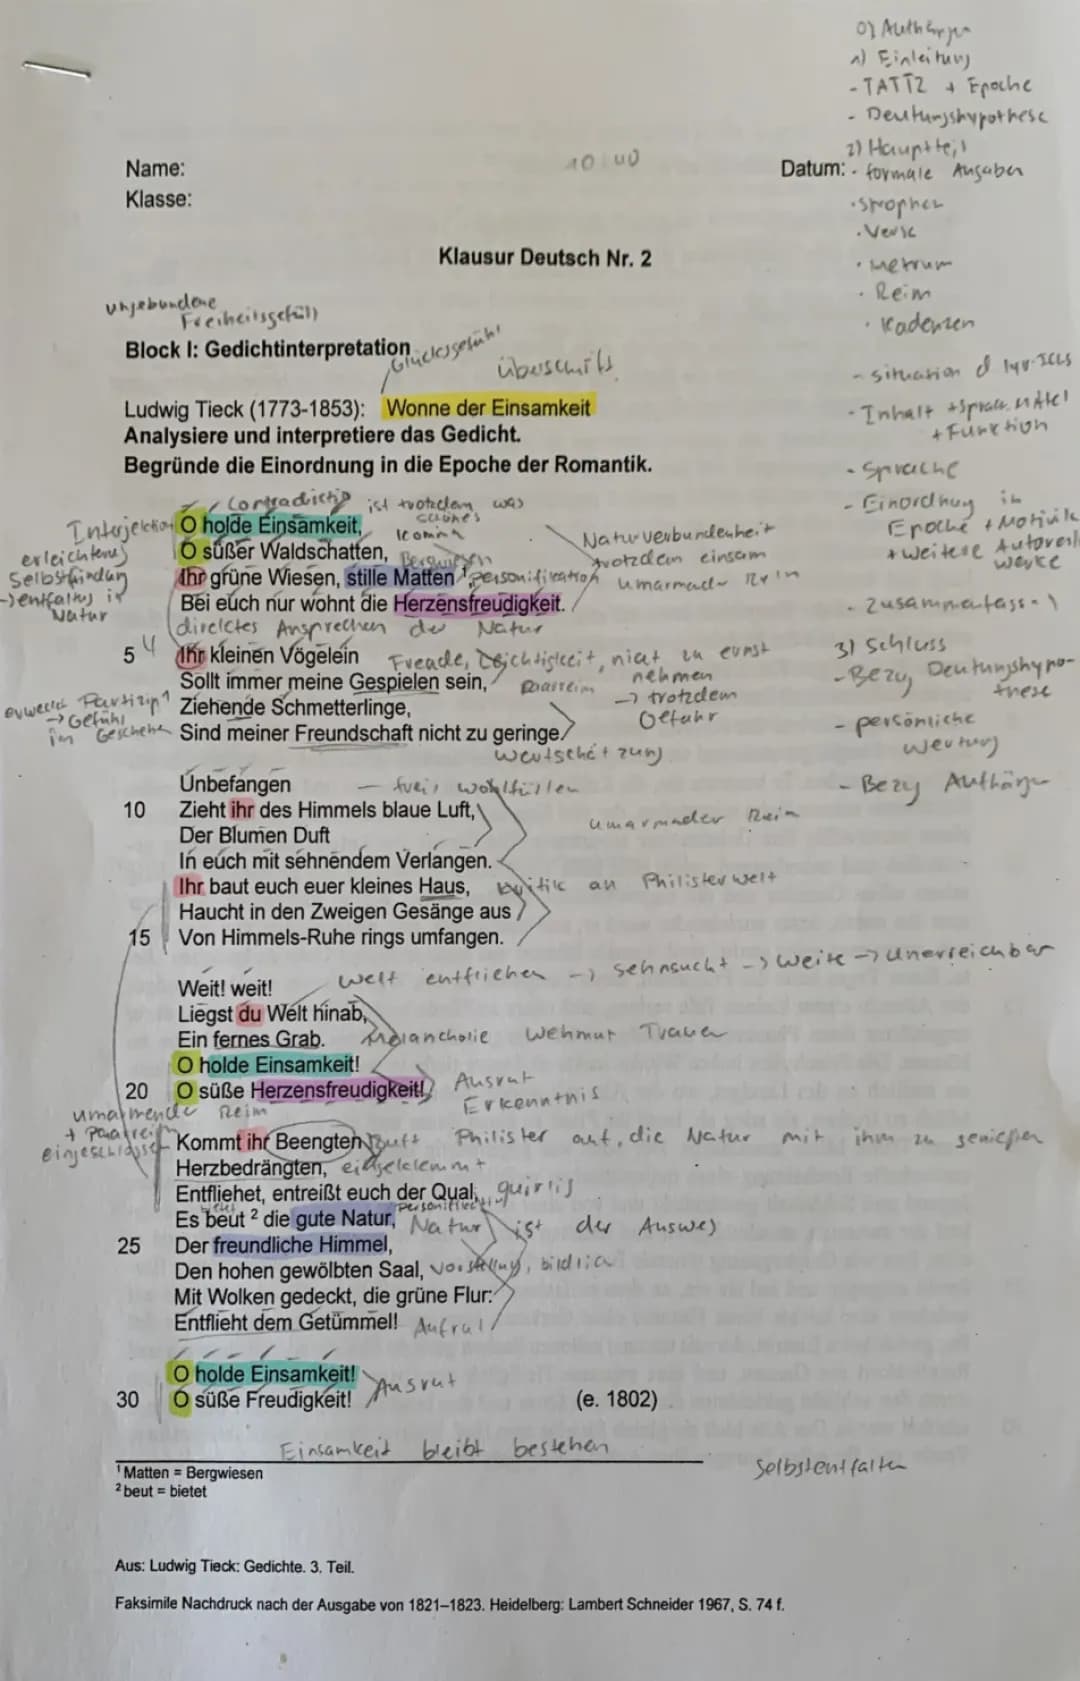 0) Aufhänger
1) Einleitung
- TATTZ + Epoche
- Deutungshypothese
2) Hauptteil
Name:
10:40
Datum: - formale Angaben
Klasse:
· Strophen
· Verse
Klausur Deutsch Nr. 2
· Metrum
· Reim
· Kadenzen
ungebundene
Freiheitsgefühl
Block I: Gedichtinterpretation
Glücksgefühl
Überschrift
- Situation d lyr. Ichs
Ludwig Tieck (1773-1853): Wonne der Einsamkeit
- Inhalt + sprach. Mittel
+ Funktion
Analysiere und interpretiere das Gedicht.
Begründe die Einordnung in die Epoche der Romantik.
- Sprache
- Einordnung in
Epoche + Motivik
+ weitere
werke
- Zusammenfass.
3) Schluss
- Bezug Deutungshypo-
these
- persönliche
Wertung
- Bezug Aufhänger
Contradictio ist trotzdem was
schönes
Interjektion O holde Einsamkeit,
komma
erleichterung
Selbstfindung
-> entfaltung in
Natur
O süßer Waldschatten, Bergwiesen
Naturverbundenheit
trotzdem einsam
Ihr grüne Wiesen, stille Matten ¹, Personifikation umarmender Reim
Bei euch nur wohnt die Herzensfreudigkeit.
direktes Ansprechen der Natur
5 4 Ihr kleinen Vögelein Freude, Leichtigkeit, nicht zu ernst
nehmen
Sollt immer meine Gespielen sein, Paarreim
-> trotzdem
Gefahr
erweckt Partizip 1
-> Gefühl
im Geschehen
Ziehende Schmetterlinge,
Sind meiner Freundschaft nicht zu geringe.
Wertschätzung
Unbefangen — frei, wohlfüllen
10 Zieht ihr des Himmels blaue Luft,
umarmender Reim
Der Blumen Duft
In euch mit sehnendem Verlangen.
Ihr baut euch euer kleines Haus, Kritik an Philisterwelt
Haucht in den Zweigen Gesänge aus
15 Von Himmels-Ruhe rings umfangen.
Weit! weit! Welt entfliehen -> Sehnsucht -> Weite -> Unerreichbar
Liegst du Welt hinab,
Ein fernes Grab. Melancholie Wehmut Trauer
O holde Einsamkeit!
20 O süße Herzensfreudigkeit! Ausruf
Erkenntnis
umarmende Reim
+ Paarreim
eingeschlossen
Kommt ihr Beengten, Ruft Philister auf, die Natur mit ihm zu genießen
Herzbedrängten, eingeklemmt
Entfliehet, entreißt euch der Qual, quirlig
bietet Personifikation
Es beut ² die gute Natur, Natur ist der Ausweg
25 Der freundliche Himmel,
Den hohen gewölbten Saal, Vorstellung, bildlich
Mit Wolken gedeckt, die grüne Flur:
Entflieht dem Getümmel! Aufruf
O holde Einsamkeit! Ausruf
30 O süße Freudigkeit! (e. 1802)
Einsamkeit bleibt bestehen
Selbstentfalten
¹ Matten = Bergwiesen
² beut = bietet
Aus: Ludwig Tieck: Gedichte. 3. Teil.
Faksimile Nachdruck nach der Ausgabe von 1821–1823. Heidelberg: Lambert Schneider 1967, S. 74 f.